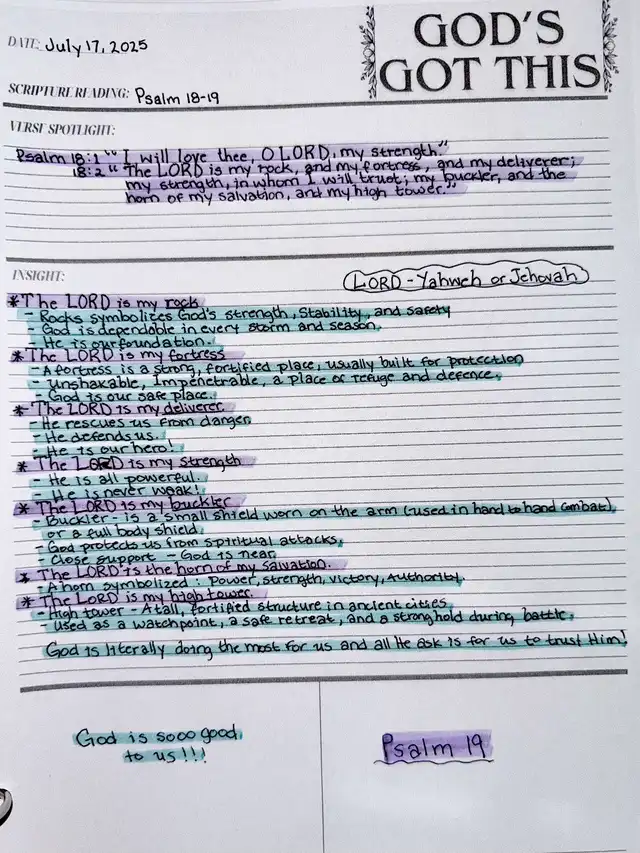 DATE: July 17, 2025
GOD'S
GOT THIS
SCRIPTURE READING: Psalm 18-19
VERSE SPOTLIGHT:
Psalm 18:1 "I will love thee, O LORD, my strength."
18:2 "The LORD is my rock, and my fortress, and my deliverer;
my strength, in whom I will trust; my buckler, and the
horn of my salvation, and my high tower."
INSIGHT:
LORD - Yahweh or Jehovah
* The LORD is my rock
- Rocks symbolizes God's strength, Stability, and safety
- God is dependable in every storm and season.
- He is our foundation.
* The LORD is my fortress
- A fortress is a strong, fortified place, usually built for protection
- Unshakable, Impenetrable, a place of refuge and defence.
- God is our safe place.
* The LORD is my deliverer.
- He rescues us from danger
- He defends us.
- He is our hero!
* The LORD is my strength
- He is all powerful.
- He is never weak!
* The LORD is my buckler
- Buckler - is a small shield worn on the arm (used in hand to hand combat),
or a full body shield.
- God protects us from spiritual attacks,
- Close support - God is near
* The LORD is the horn of my salvation.
- A horn symbolized: Power, strength, victory, Authority.
* The LORD is my high tower.
- High tower - A tall, fortified structure in ancient cities
- used as a watchpoint, a safe retreat, and a stronghold during battle.
God is literally doing the most for us and all He ask is for us to trust Him!
God is sooo good
to us!!!
Psalm 19